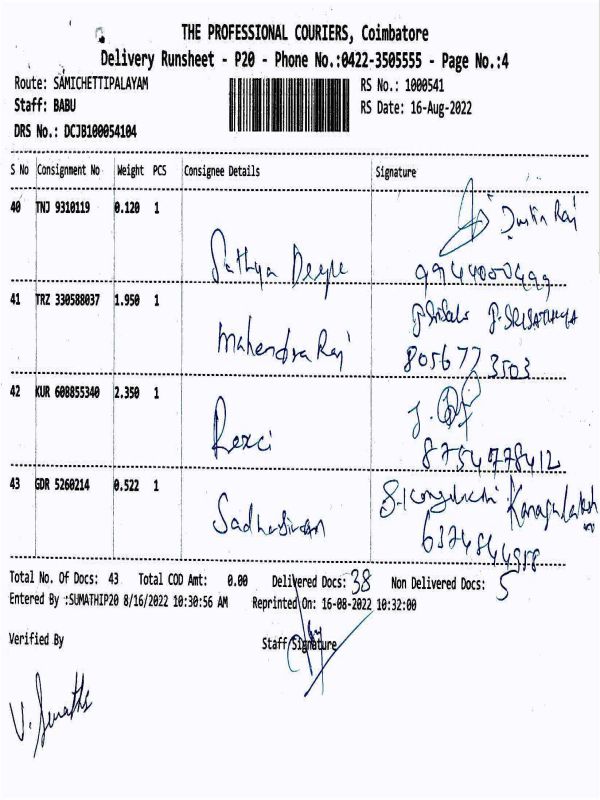 THE PROFESSIONAL COURIERS, Coimbatore
Delivery Runsheet - P20 - Phone No.:0422-3505555 - Page No.:4
Route: SAMICHETTIPALAYAM
RS No.: 1000541
Staff: BABU
RS Date: 16-Aug-2022
DRS No.: DCJB100054104
S No Consignment No Weight PCS Consignee Details Signature
40 TNJ 9310119 0.120 1
Raj
Sathya
41 TRZ 330588037 1.950 1
P. SRISATHYA
Mahendra Raj
8056773503
42 KUR 608855340 2.350 1
J.
Rexci
8754778412
43 GDR 5260214 0.522 1
Sadhasivam
6374844958
Total No. Of Docs: 43 Total COD Amt: 0.00 Delivered Docs: 38 Non Delivered Docs: 5
Entered By :SUMATHIP20 8/16/2022 10:30:56 AM Reprinted On: 16-08-2022 10:32:00
Verified By Staff Signature
V. Sumathi